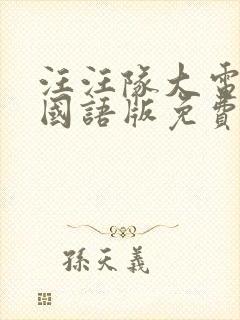 汪汪隊大電
國語版免費
孫天義